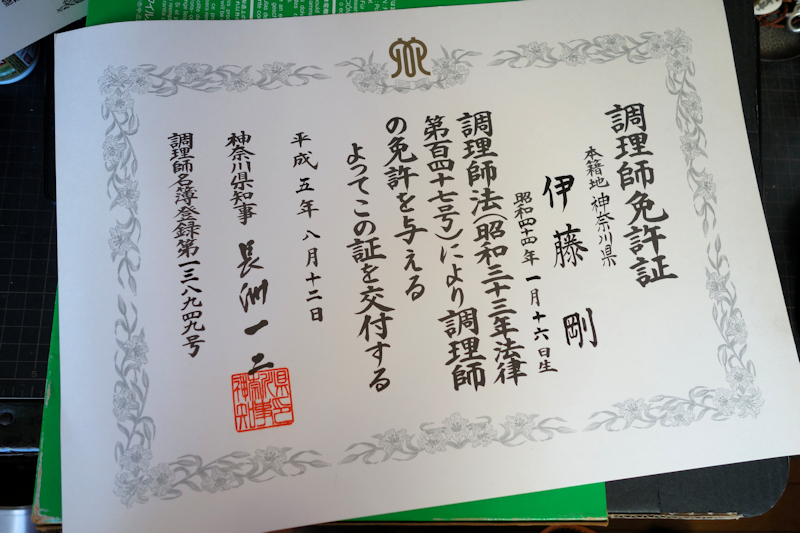 調理師免許証
本籍地 神奈川県
伊藤 剛
昭和四十四年 一月十六日生
調理師法(昭和三十三年法律
第百四十七号)により調理師
の免許を与える
よってこの証を交付する
平成五年八月十二日
神奈川県知事 長洲一二
調理師名簿登録第一三八九四九号